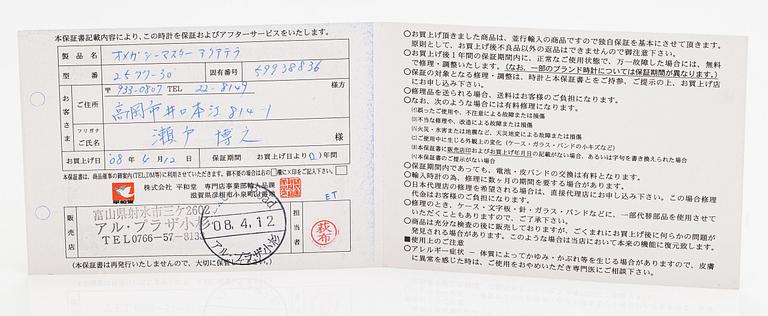 本保証書記載内容により、この時計を保証およびアフターサービスをいたします。
製品名 オメガシーマスター アクアテラ
型番 2577-30 固有番号 59938836
お客さま
ご住所 〒933-0807 TEL 22-8149 様方
高岡市井口本江814-1
フリガナ
ご氏名 瀬戸 博之 様
お買上げ日 '08年4月12日 保証期間 お買上げ日より(1)年間
本保証書は、商品催事の御案内(TEL,DM等)に使用させて頂きます。御不要の場合は右の□欄に×印をご記入下さい。
平和堂 株式会社 平和堂 専門店事業部輸入品課
滋賀県彦根市小泉町
ET
販売店
富山県射水市三ケ2602
アル・プラザ小杉
TEL0766-57-813
'08.4.12
アル・プラザ小杉
担当者 荻布
(本保証書は再発行いたしませんので、大切に保管してください。)
○お買上げ頂きました商品は、並行輸入の商品ですので独自保証を基本にさせて頂きます。
原則として、お買上げ後不良品以外の返品はできませんので御注意下さい。
○お買上げ後1年間の保証期間内に、正常なご使用状態で、万一故障した場合には、無料
で修理・調整いたします。(なお、一部のブランド時計については保証期間が異なります。)
○保証の対象となる修理・調整は、時計と本保証書とをご持参、ご提示の上、お買上げ店
にお申し込み下さい。
○修理品を送られる場合、送料はお客様のご負担になります。
○なお、次のような場合には有料修理になります。
(イ)誤ったご使用や、不注意による故障または損傷
(ロ)不当な修理や、改造による故障または損傷
(ハ)火災・水害または地震など、天災地変による故障または損傷
(ニ)ご使用中に生じる外観上の変化(ケース・ガラス・バンドの小キズなど)
(ホ)本保証書に販売店印およびお買上げ年月日の記載がない場合、あるいは字句を書き換えられた場合
(ヘ)本保証書のご提示がない場合
○保証期間内であっても、電池・皮バンドの交換は有料となります。
○輸入時計の為、修理に数ヶ月の期間を要する場合があります。
○日本代理店の修理を希望される場合は、直接代理店にお申し込み下さい。この場合修理
代金はお客様のご負担になります。
○修理のとき、ケース・文字板・針・ガラス・バンドなどに、一部代替部品を使用させて
いただくこともありますので、ご了承下さい。
○商品は充分な検査の後に販売しておりますが、ごくまれにお買上げ後に何らかの問題が
発見される場合があります。このような場合は当店において本来の機能に復元致します。
■使用上のご注意
○アレルギー症状 − 体質によってかゆみ・かぶれ等を生じる場合がありますので、皮膚
に異常を感じた時は、ご使用をおやめいただき専門医にご相談下さい。